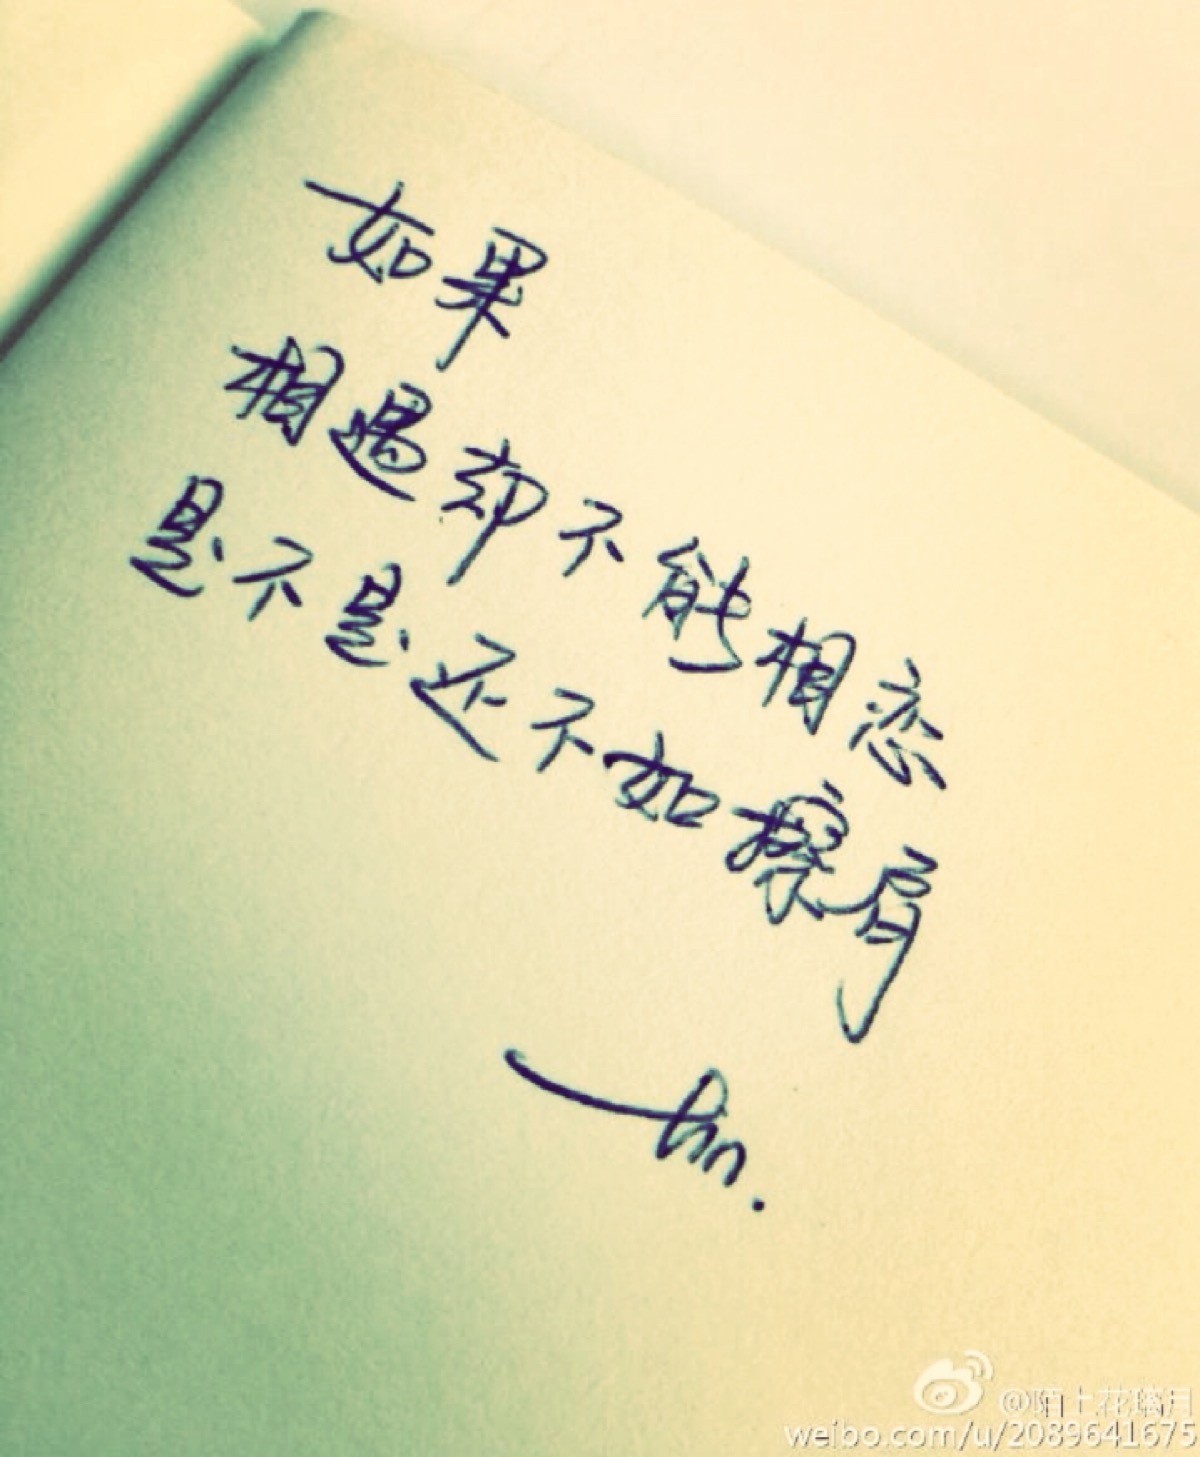 如果
相遇却不能相恋
是不是还不如擦肩
@陌上花璃月
weibo.com/u/2089641675